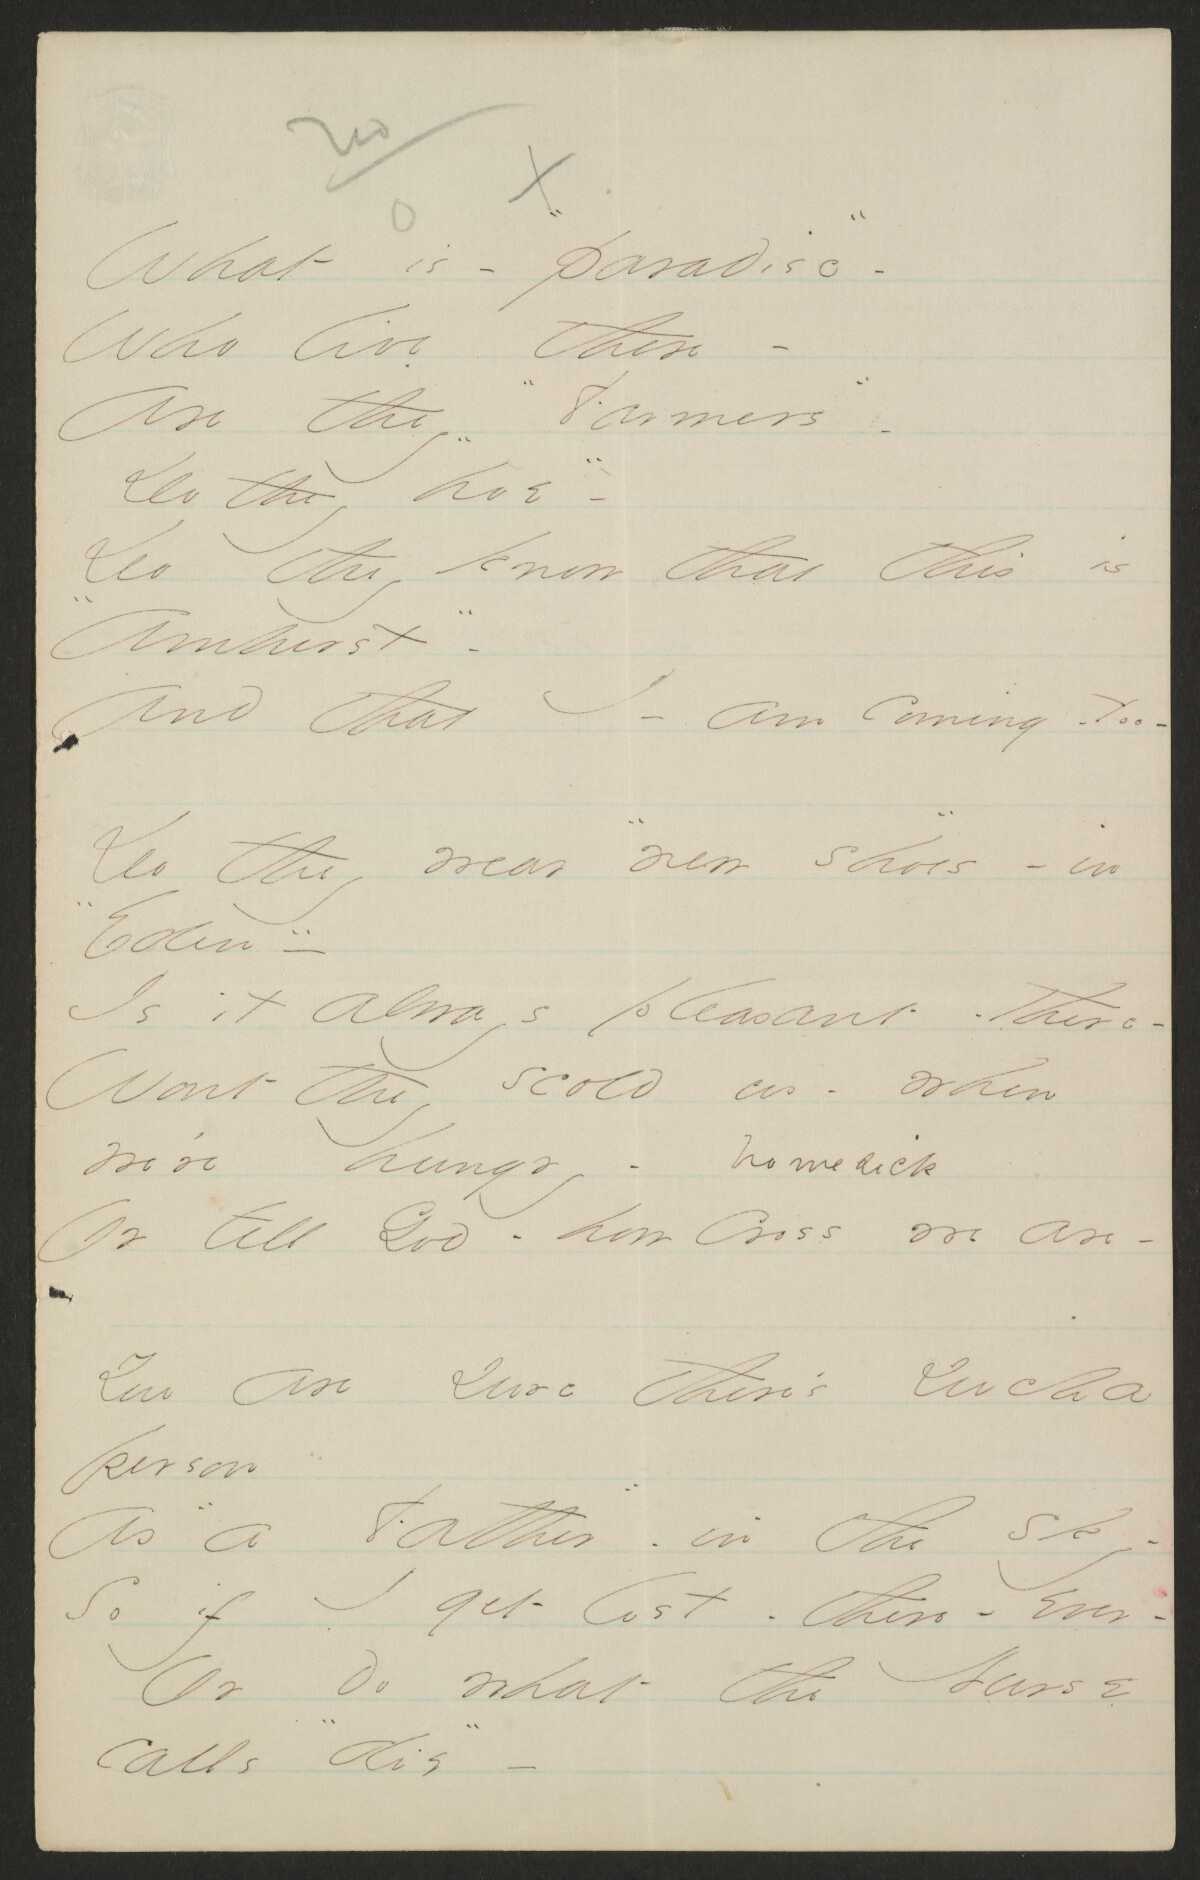 X
0
What is - "Paradise" -
Who live there -
Are they "Farmers" -
Do they "hoe" -
Do they know that this is
"Amherst" -
And that I - am coming - too -
Do they wear "new shoes" - in
"Eden" -
Is it always pleasant - there -
Wont they scold us - when
we're hungry - homesick
Or tell God - how cross we are -
You are sure there's such a
person
As "a Father" - in the sky -
So if I get lost - there - ever -
Or do what the Nurse
calls "die" -